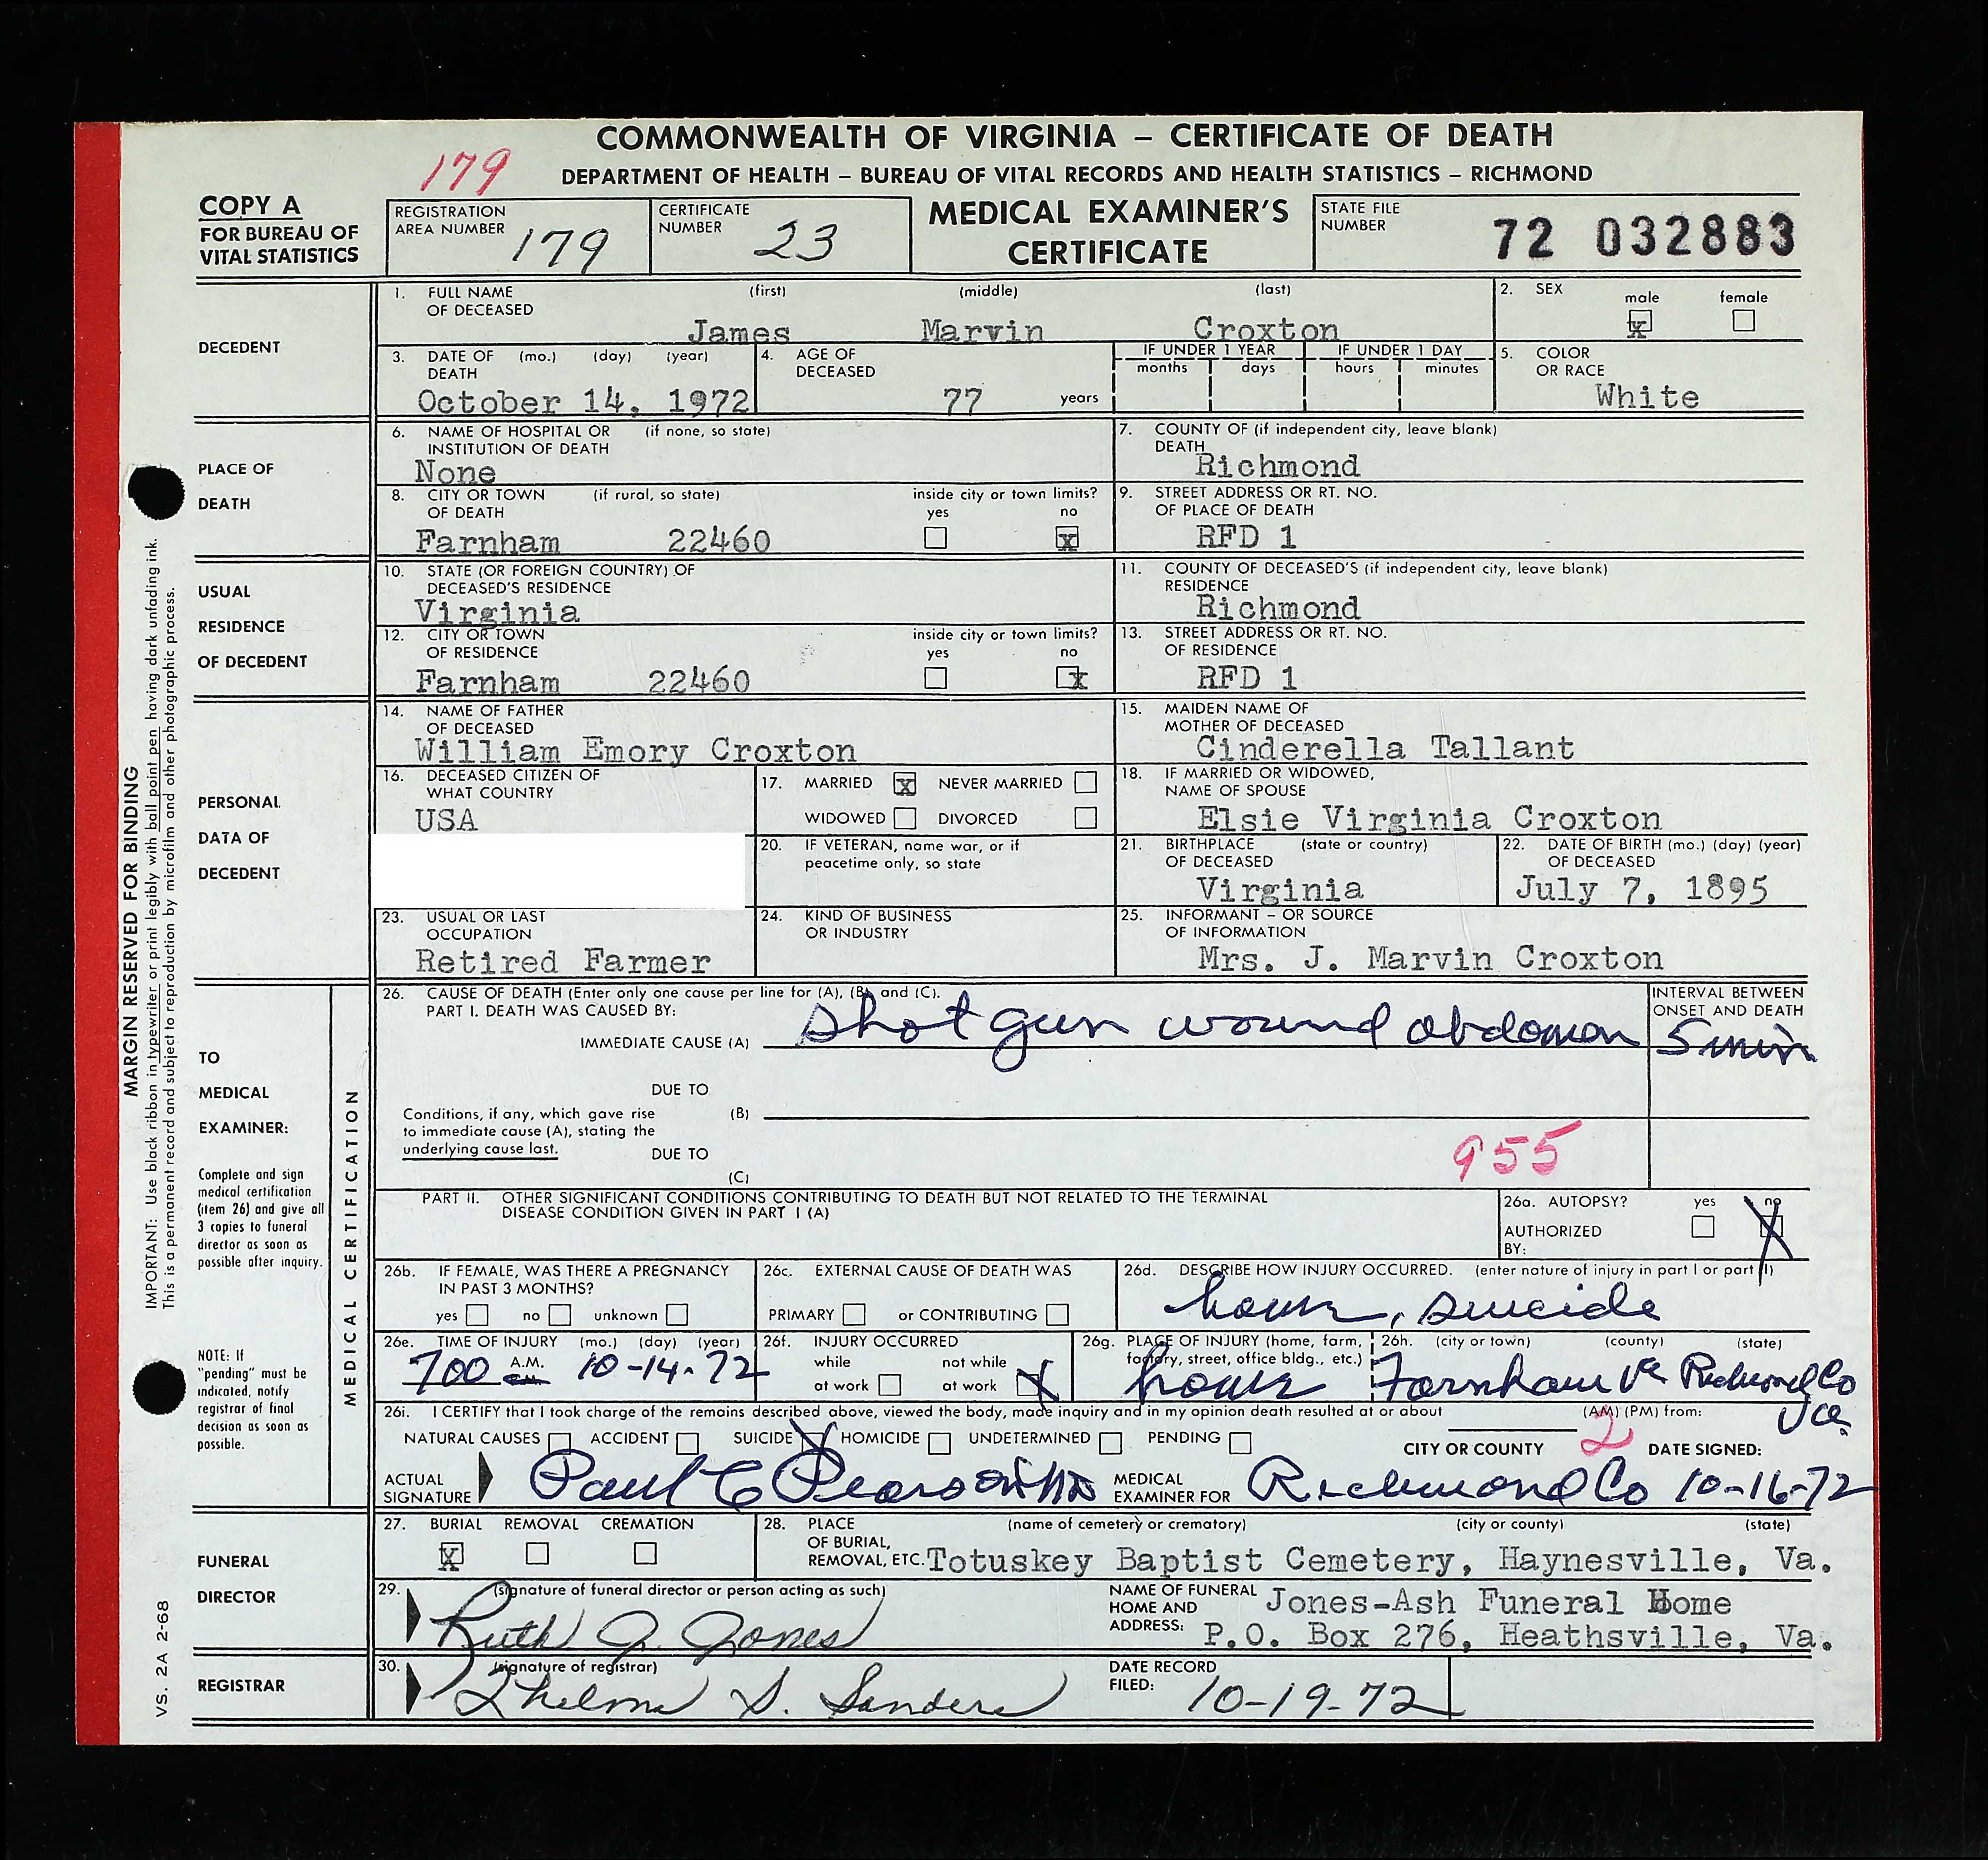 COMMONWEALTH OF VIRGINIA – CERTIFICATE OF DEATH
179
DEPARTMENT OF HEALTH – BUREAU OF VITAL RECORDS AND HEALTH STATISTICS – RICHMOND
COPY A
FOR BUREAU OF
VITAL STATISTICS
REGISTRATION
AREA NUMBER 179
CERTIFICATE
NUMBER 23
MEDICAL EXAMINER'S
CERTIFICATE
STATE FILE
NUMBER 72 032883
DECEDENT
1. FULL NAME (first) (middle) (last)
OF DECEASED
James Marvin Croxton
2. SEX male female
x
3. DATE OF (mo.) (day) (year)
DEATH
October 14, 1972
4. AGE OF
DECEASED
77 years
IF UNDER 1 YEAR IF UNDER 1 DAY
months days hours minutes
5. COLOR
OR RACE
White
PLACE OF
DEATH
6. NAME OF HOSPITAL OR (if none, so state)
INSTITUTION OF DEATH
None
7. COUNTY OF (if independent city, leave blank)
DEATH
Richmond
8. CITY OR TOWN (if rural, so state) inside city or town limits?
OF DEATH yes no
Farnham 22460 x
9. STREET ADDRESS OR RT. NO.
OF PLACE OF DEATH
RFD 1
USUAL
RESIDENCE
OF DECEDENT
10. STATE (OR FOREIGN COUNTRY) OF
DECEASED'S RESIDENCE
Virginia
11. COUNTY OF DECEASED'S (if independent city, leave blank)
RESIDENCE
Richmond
12. CITY OR TOWN inside city or town limits?
OF RESIDENCE yes no
Farnham 22460 x
13. STREET ADDRESS OR RT. NO.
OF RESIDENCE
RFD 1
PERSONAL
DATA OF
DECEDENT
14. NAME OF FATHER
OF DECEASED
William Emory Croxton
15. MAIDEN NAME OF
MOTHER OF DECEASED
Cinderella Tallant
16. DECEASED CITIZEN OF
WHAT COUNTRY
USA
17. MARRIED x NEVER MARRIED
WIDOWED DIVORCED
18. IF MARRIED OR WIDOWED,
NAME OF SPOUSE
Elsie Virginia Croxton
20. IF VETERAN, name war, or if
peacetime only, so state
21. BIRTHPLACE (state or country)
OF DECEASED
Virginia
22. DATE OF BIRTH (mo.) (day) (year)
OF DECEASED
July 7, 1895
23. USUAL OR LAST
OCCUPATION
Retired Farmer
24. KIND OF BUSINESS
OR INDUSTRY
25. INFORMANT – OR SOURCE
OF INFORMATION
Mrs. J. Marvin Croxton
MARGIN RESERVED FOR BINDING
IMPORTANT: Use black ribbon in typewriter or print legibly with ball point pen having dark unfading ink.
This is a permanent record and subject to reproduction by microfilm and other photographic process.
TO
MEDICAL
EXAMINER:
Complete and sign
medical certification
(item 26) and give all
3 copies to funeral
director as soon as
possible after inquiry.
NOTE: If
"pending" must be
indicated, notify
registrar of final
decision as soon as
possible.
MEDICAL CERTIFICATION
26. CAUSE OF DEATH (Enter only one cause per line for (A), (B), and (C).
PART I. DEATH WAS CAUSED BY:
IMMEDIATE CAUSE (A) Shot gun wound abdomen
INTERVAL BETWEEN
ONSET AND DEATH
5 min
DUE TO
Conditions, if any, which gave rise (B)
to immediate cause (A), stating the
underlying cause last. DUE TO
(C)
955
PART II. OTHER SIGNIFICANT CONDITIONS CONTRIBUTING TO DEATH BUT NOT RELATED TO THE TERMINAL
DISEASE CONDITION GIVEN IN PART I (A)
26a. AUTOPSY? yes no
AUTHORIZED X
BY:
26b. IF FEMALE, WAS THERE A PREGNANCY
IN PAST 3 MONTHS?
yes no unknown
26c. EXTERNAL CAUSE OF DEATH WAS
PRIMARY or CONTRIBUTING
26d. DESCRIBE HOW INJURY OCCURRED. (enter nature of injury in part I or part II)
home, suicide
26e. TIME OF INJURY (mo.) (day) (year)
700 A.M. 10-14-72
26f. INJURY OCCURRED
while not while
at work at work X
26g. PLACE OF INJURY (home, farm,
factory, street, office bldg., etc.)
home
26h. (city or town) (county) (state)
Farnham Va Richmond Co
Va.
26i. I CERTIFY that I took charge of the remains described above, viewed the body, made inquiry and in my opinion death resulted at or about (AM) (PM) from:
NATURAL CAUSES ACCIDENT SUICIDE X HOMICIDE UNDETERMINED PENDING
CITY OR COUNTY 2 DATE SIGNED:
ACTUAL
SIGNATURE Paul C Pearson MD
MEDICAL
EXAMINER FOR Richmond Co 10-16-72
FUNERAL
DIRECTOR
27. BURIAL REMOVAL CREMATION
x
28. PLACE (name of cemetery or crematory) (city or county) (state)
OF BURIAL,
REMOVAL, ETC. Totuskey Baptist Cemetery, Haynesville, Va.
29. (signature of funeral director or person acting as such)
Ruth J. Jones
NAME OF FUNERAL
HOME AND
ADDRESS:
Jones-Ash Funeral Home
P.O. Box 276, Heathsville, Va.
REGISTRAR
30. (signature of registrar)
Thelma S. Sanders
DATE RECORD
FILED: 10-19-72
VS. 2A 2-68